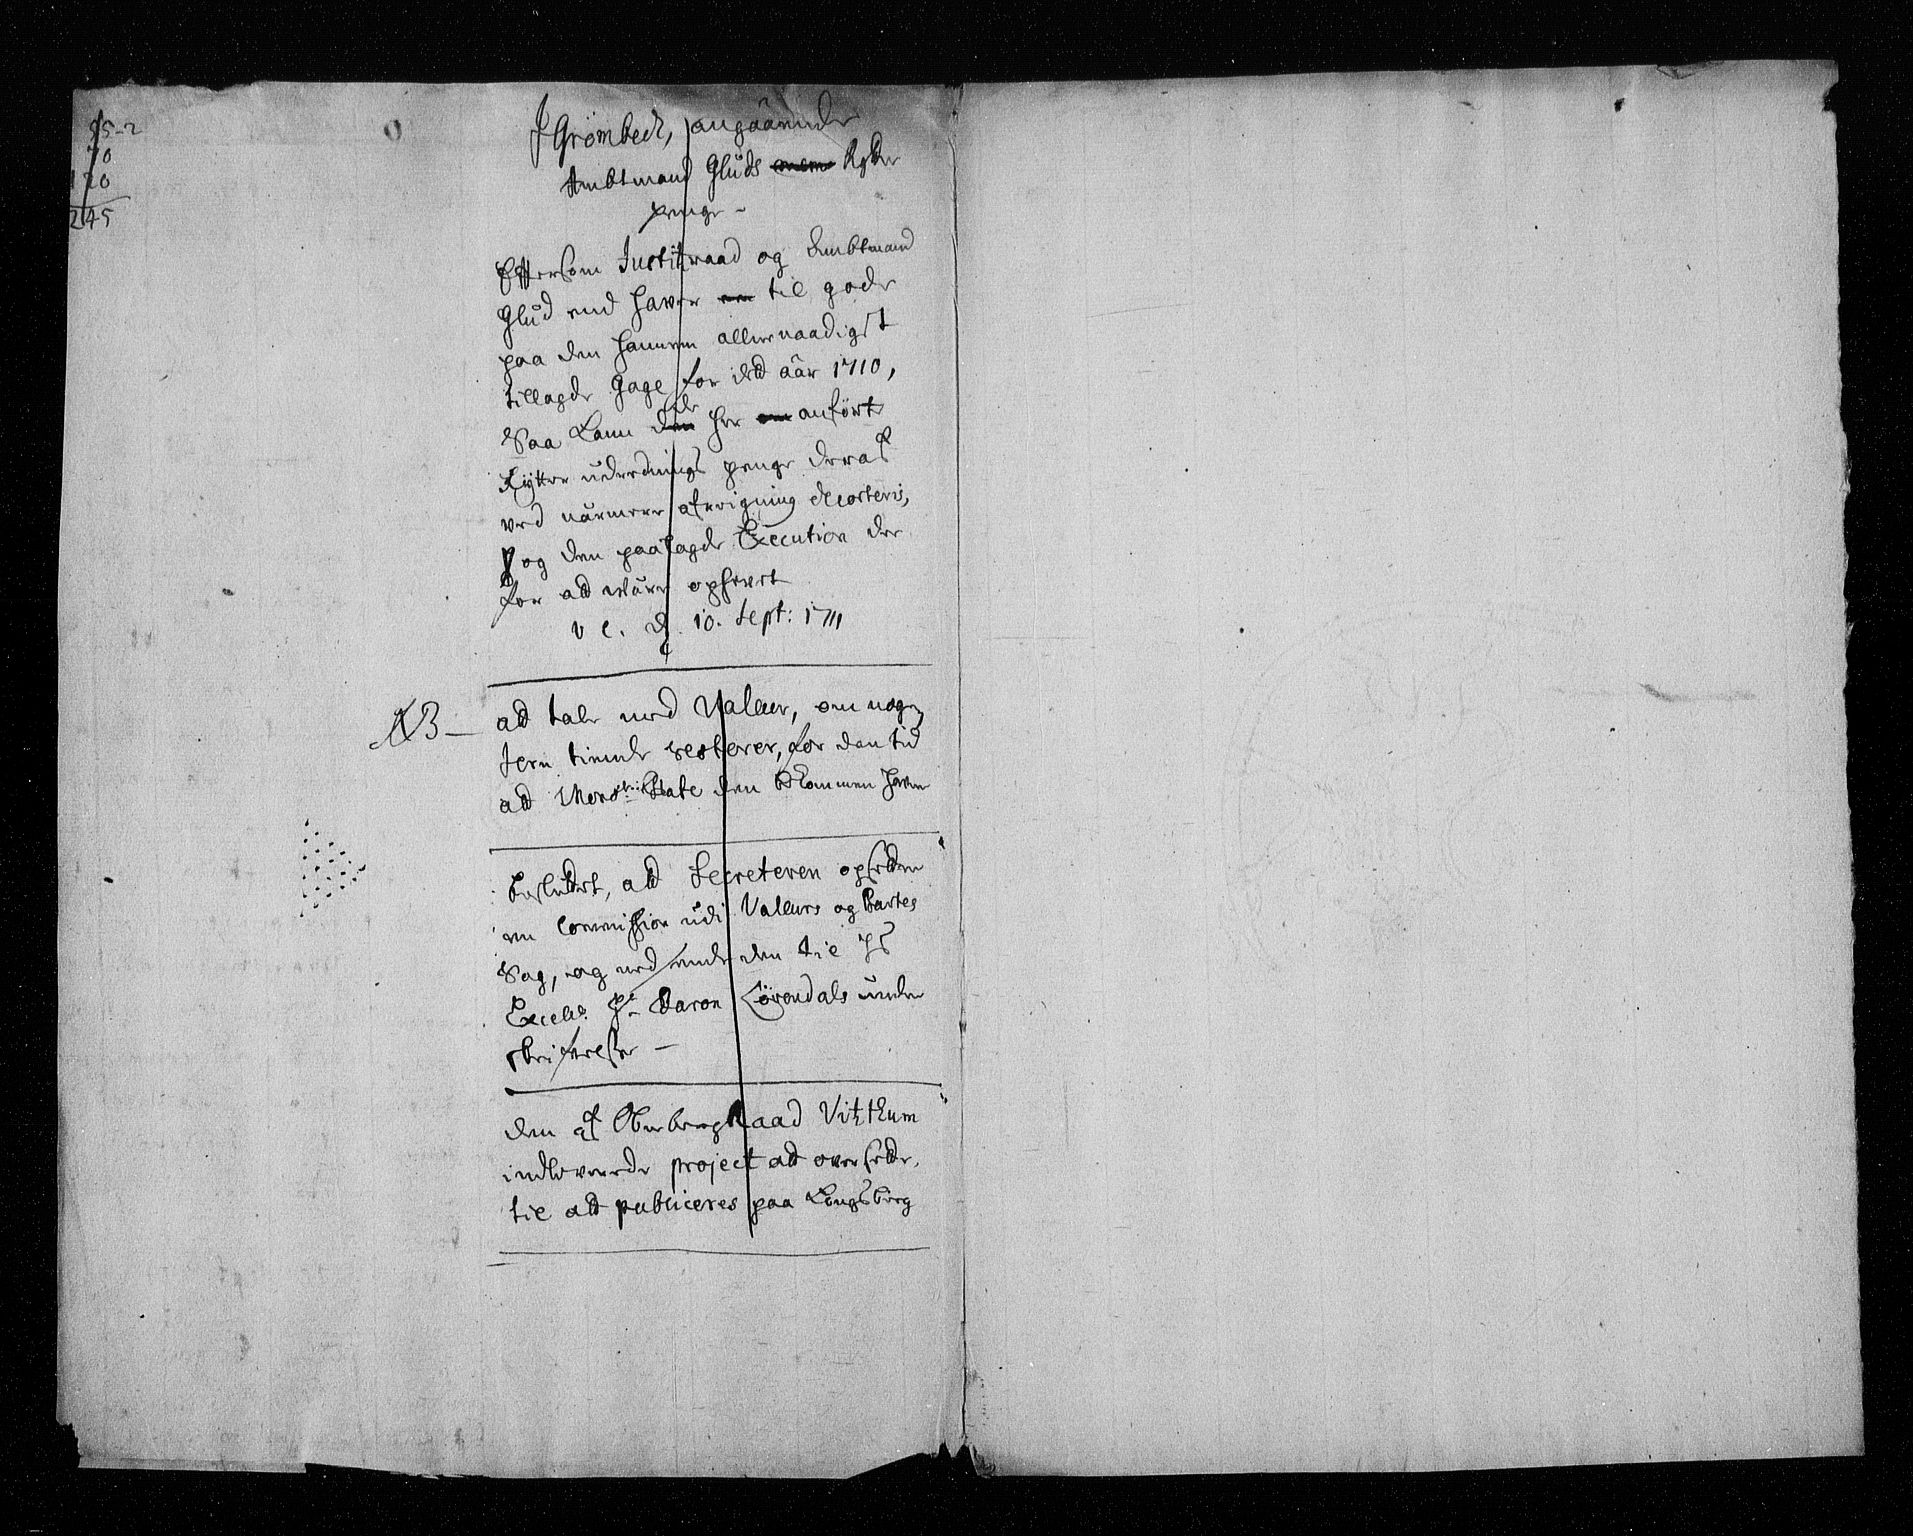 95-2
70
120
245
J Grømbech, angaaende
Ambtmand Gluds Rytter
penge -
Eftersom Justitzraad og Ambtmand
Glud end haver til gode
paa den hannem allernaadigst
tillagde Gage for ded aar 1710,
Saa kand de her anførte
Rytter udrednings penge deraf
ved nærmere afreigning decorteris,
og den paalagde Execution der
for ad være ophevet
V C. d. 10. Sept: 1711
NB - ad tale med Valeur, om nogen
Jern tiende resterer, for den tid
ad Bate den bekommen haver
besluttet, ad Secreteren opsetter
en Commission udi Valeurs og Bartes
Sag, og nedsende den til Hs
Excell. Hr Baron Løvendals under
skrifvelse -
den af Oberberg Raad Vitzthum
indleverede project ad oversette,
til ad publiceres paa Kongsberg